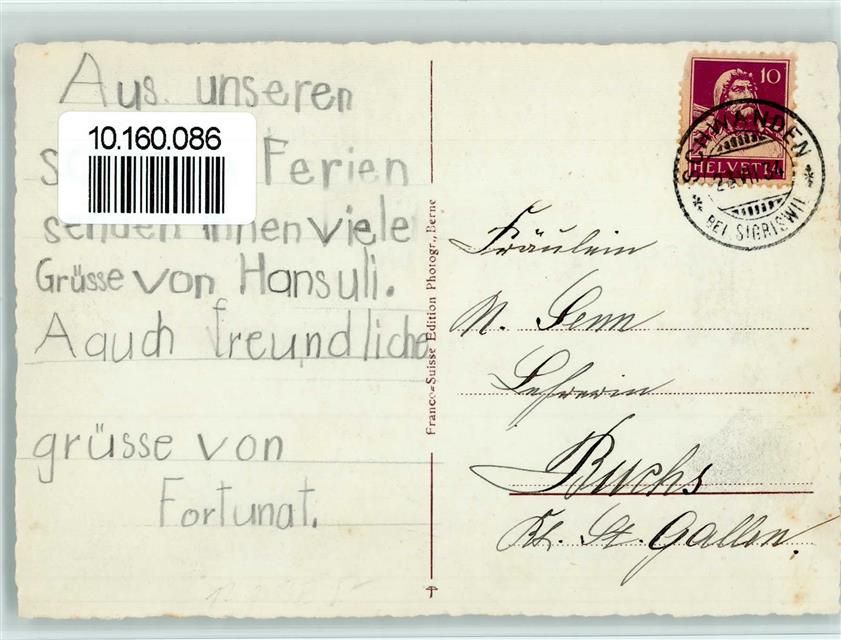 Aus unseren
Ferien
senden ihnen viele
Grüsse von Hansuli.
A auch freundliche
grüsse von
Fortunat.
10.160.086
Franco-Suisse Edition Photogr., Berne
10
HELVETIA
SCHWANDEN
VII.34
BEI SIGRISWIL
Fräulein
N. Senn
Lehrerin
Buchs
Kt. St. Gallen.